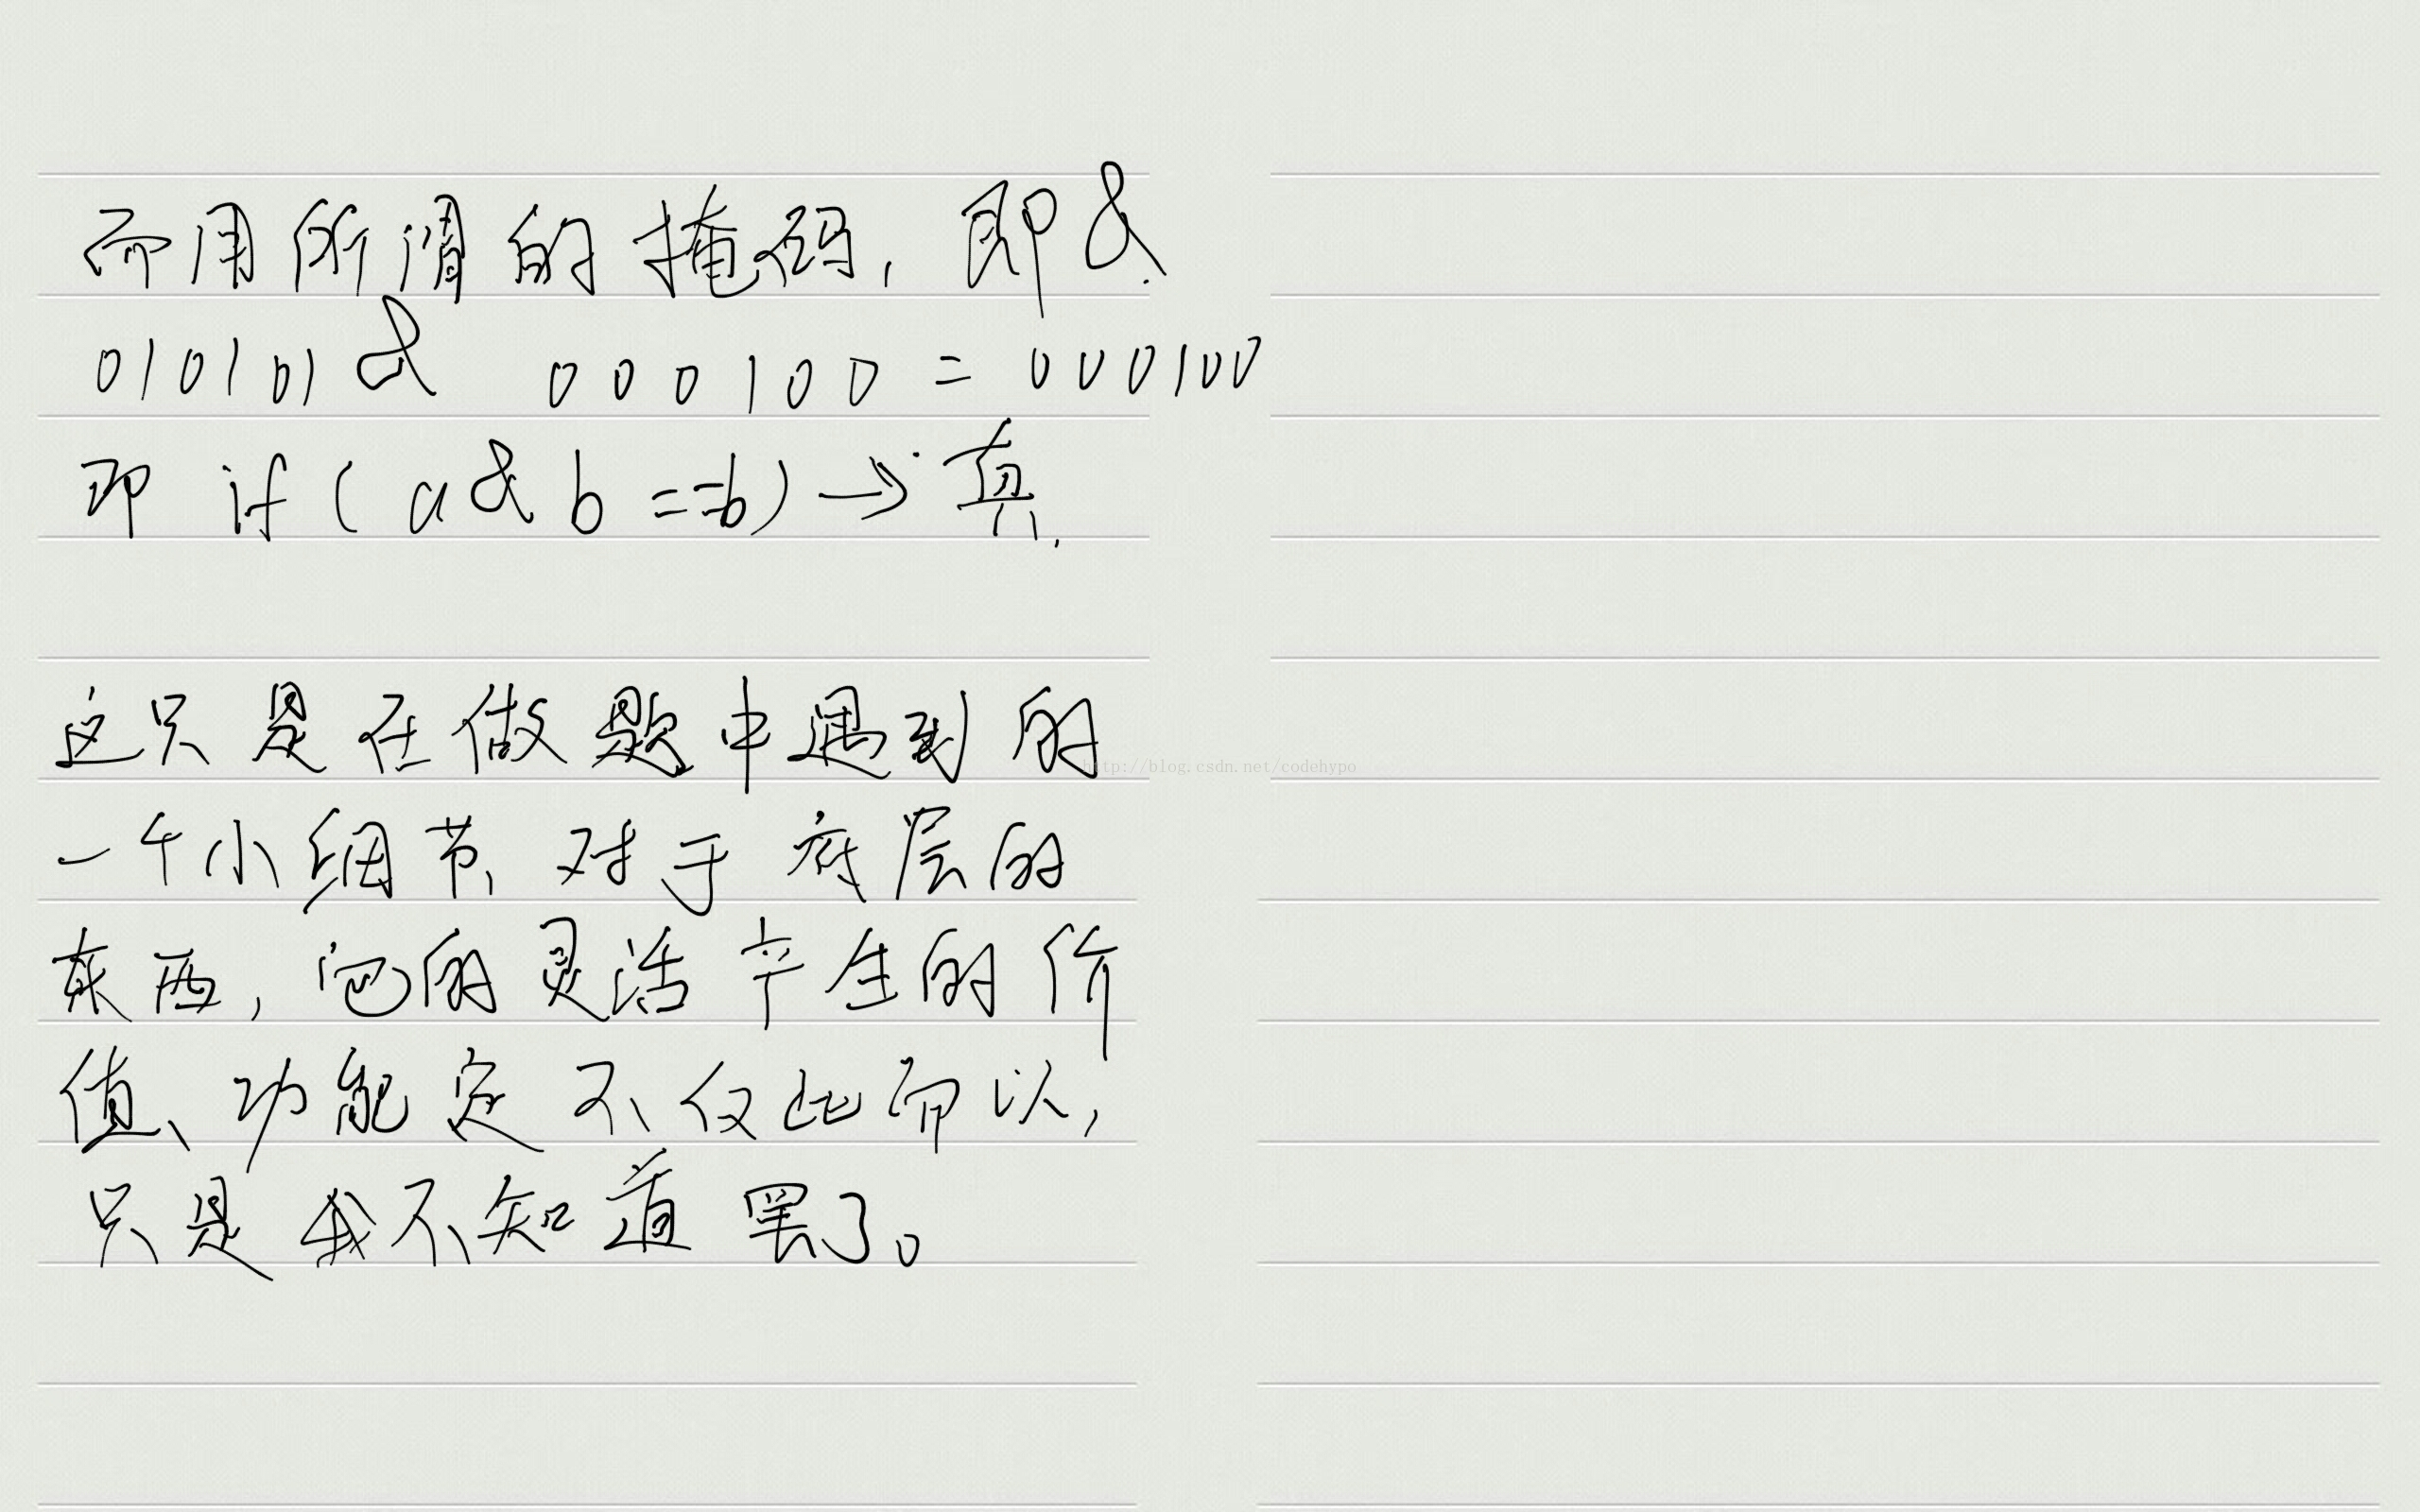 而用所谓的掩码, 即&.
010101 & 000100 = 000100
即 if (a & b == b) → 真.
这只是在做题中遇到的
http://blog.csdn.net/codehypo
一个小细节, 对于底层的
东西, 它的灵活产生的价
值、功能定不仅此而以,
只是我不知道罢了。